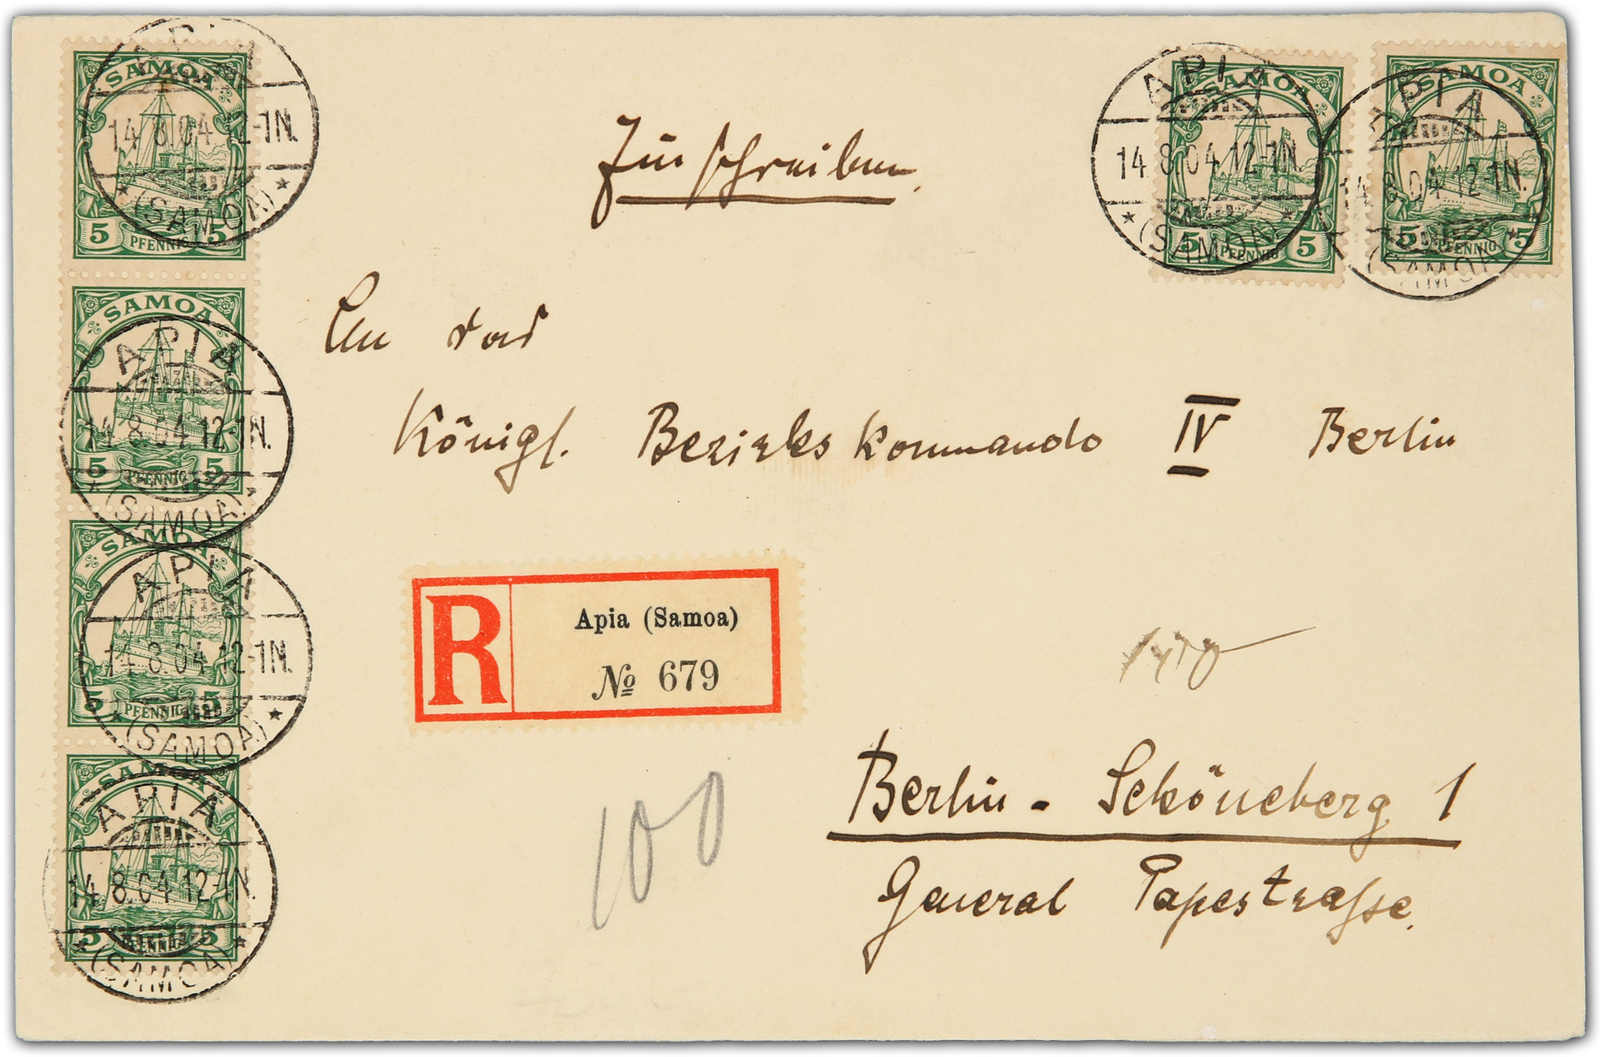 SAMOA
5 PFENNIG 5
APIA
14.8.04.12-1N.
* (SAMOA) *
SAMOA
5 PFENNIG 5
APIA
14.8.04.12-1N.
* (SAMOA) *
SAMOA
5 PFENNIG 5
APIA
14.8.04.12-1N.
* (SAMOA) *
SAMOA
5 PFENNIG 5
APIA
14.8.04.12-1N.
* (SAMOA) *
SAMOA
5 PFENNIG 5
APIA
14.8.04.12-1N.
* (SAMOA) *
SAMOA
5 PFENNIG 5
APIA
14.8.04.12-1N.
* (SAMOA) *
An das
Königl. Bezirkskommando IV Berlin
R Apia (Samoa)
№ 679
100
Berlin - Schöneberg 1
General Papestraße.